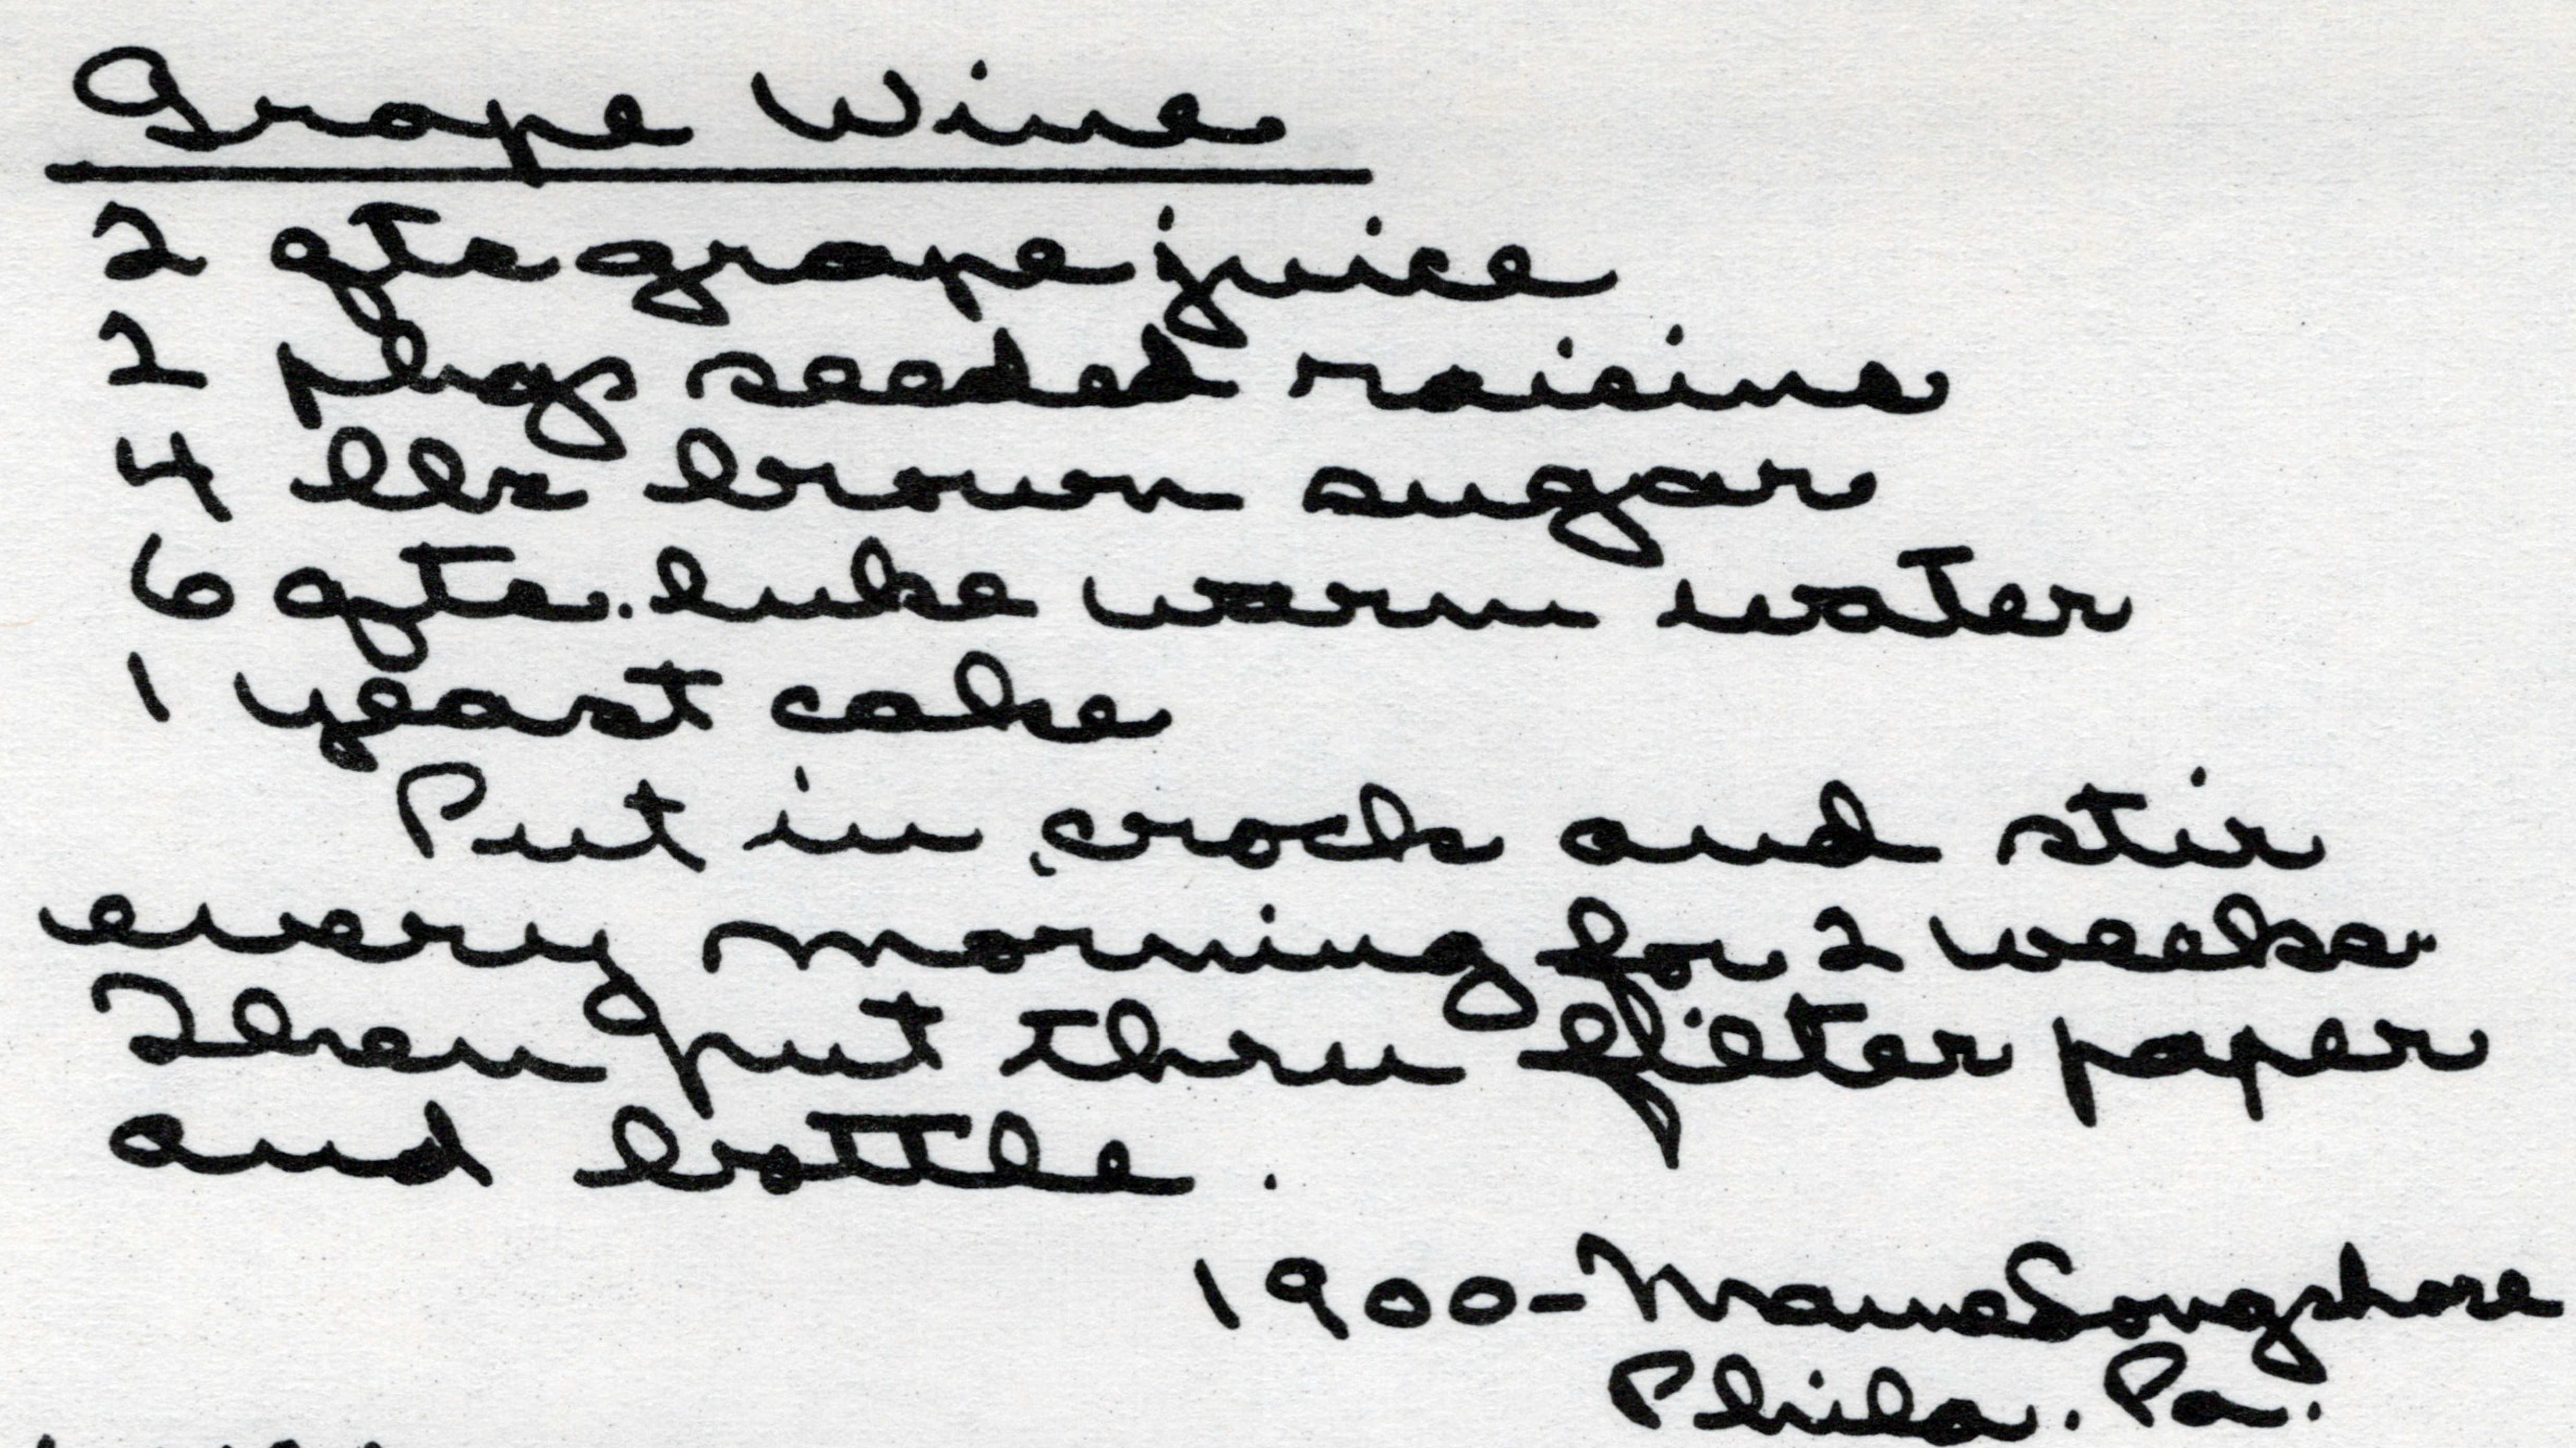 Grape Wine
2 qts grape juice
2 pkgs seeded raisins
4 lbs brown sugar
6 qts. luke warm water
1 yeast cake
Put in crock and stir
every morning for 2 weeks.
Then put thru filter paper
and bottle.
1900-Mame Longshore
Phila. Pa.